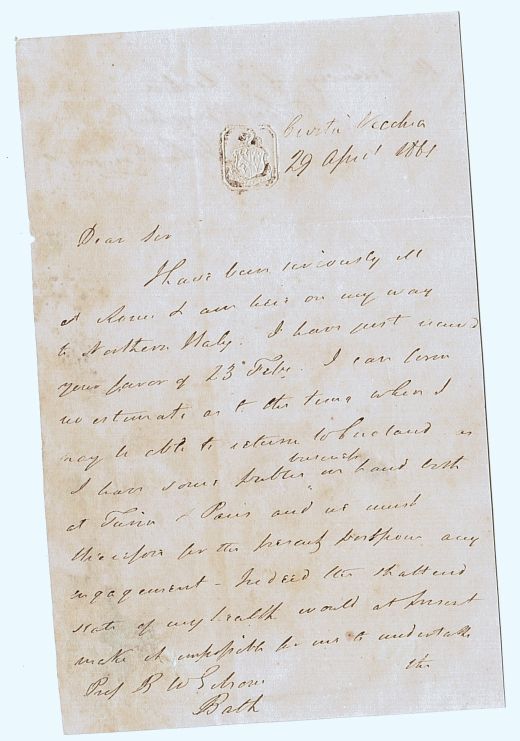 Civita Vecchia
29 April 1861
Dear Sir
I have been seriously ill
at Rome & am here on my way
to Northern Italy. I have just received
your favor of 23d Feby. I can form
no estimate as to the time when I
may be able to return to England as
I have some public business on hand both
at Turin & Paris and we must
therefore for the present postpone any
engagement - Indeed the shattered
state of my health would at present
make it impossible for me to undertake
the
Prof R W
Bath